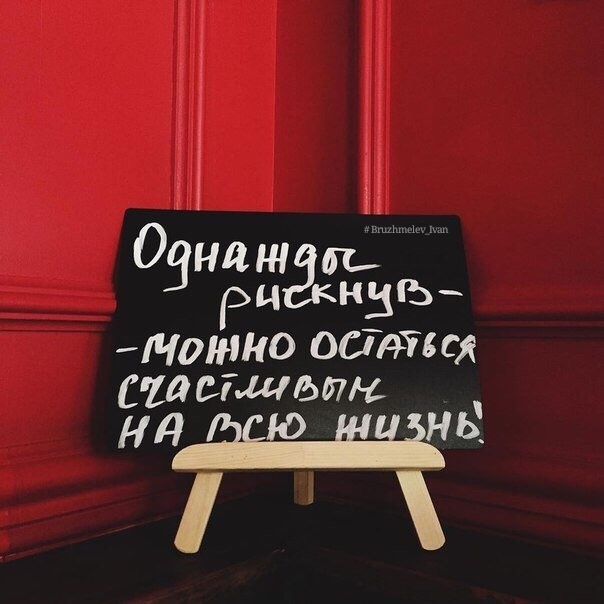 # Bruzhmelev_Ivan
Однажды
рискнув-
-можно остаться
счастливым
на всю жизнь!